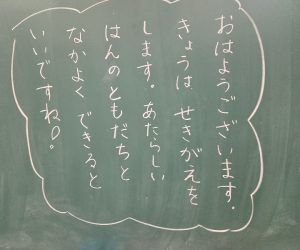 おはようございます.
きょうは せきがえを
します. あたらしい
はんのともだちと
なかよく できると
いいですね!